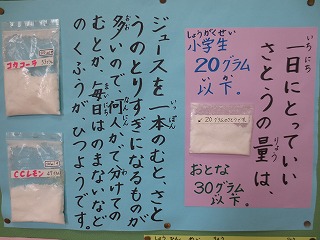 一日にとっていい
さとうの量は、
小学生
20グラム
以下。
おとな
30グラム
以下。
ジュースを一本のむと、さと
うのとりすぎになるものが
多いので、何人かで分けての
むとか、毎日はのまないなど
のくふうが、ひつようです。
コカコーラ
CCレモン